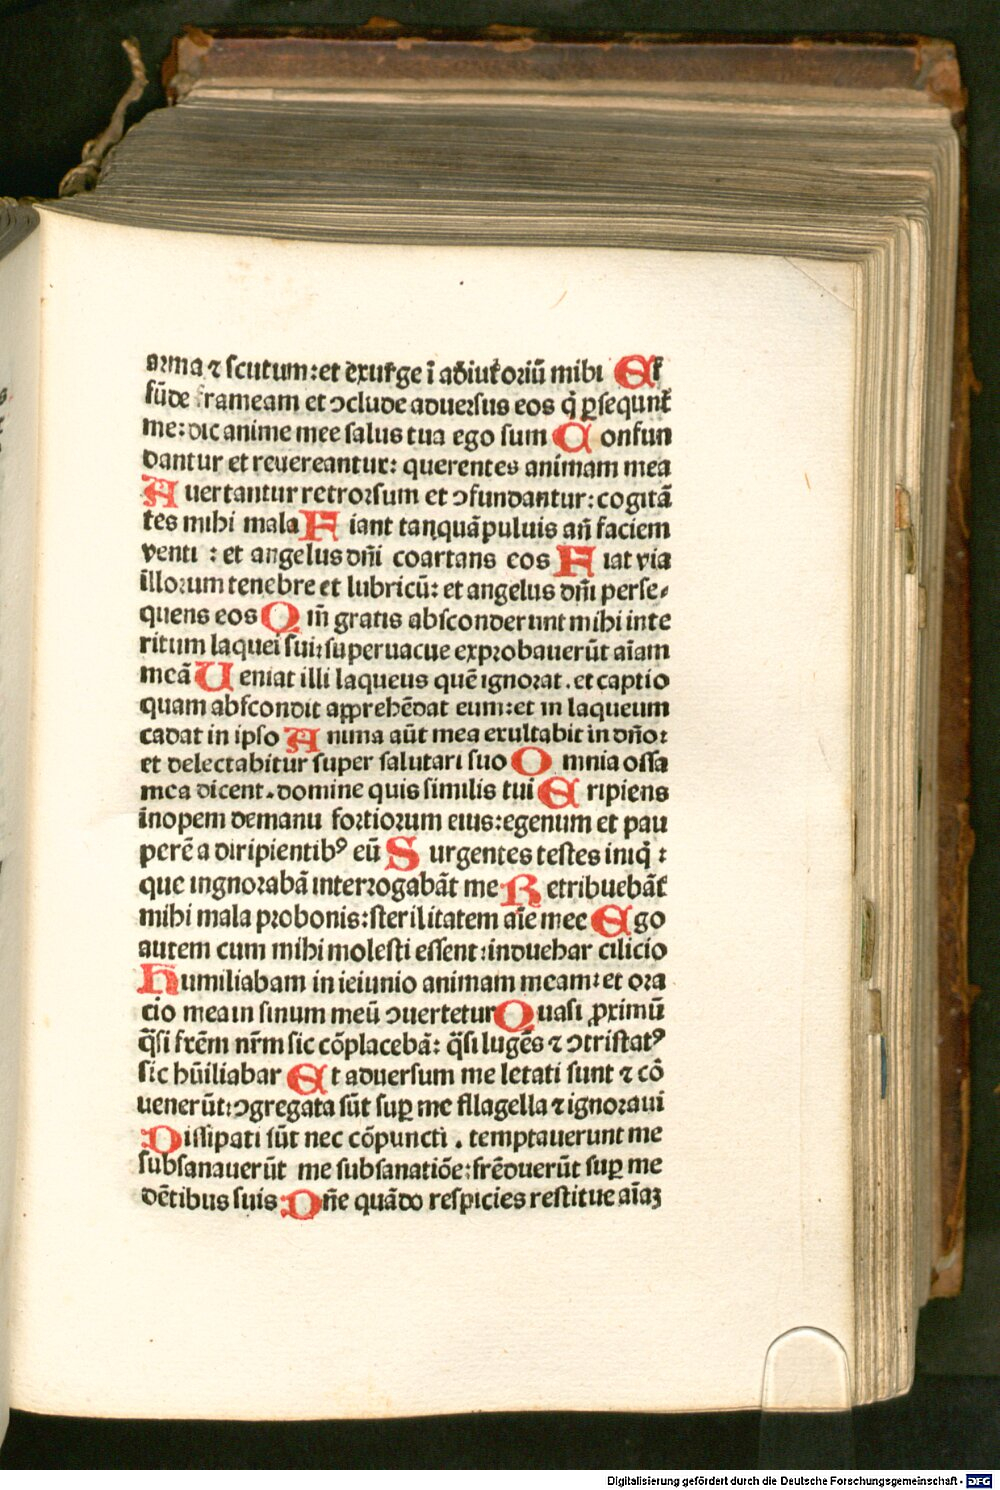 arma ⁊ scutum: et exurge ī adiutoriū mihi Ef
fūde frameam et ↄclude aduersus eos q̇ ꝑsequunt᷑
me: dic anime mee salus tua ego sum Confun
dantur et reuereantur: querentes animam mea
Auertantur retrorsum et ↄfundantur: cogitā
tes mihi mala Fiant tanquā puluis an̄ faciem
venti : et angelus dn̄i coartans eos Fiat via
illorum tenebre et lubricū: et angelus dn̄i perse⸗
quens eos Qm̄ gratis absconderunt mihi inte
ritum laquei sui: superuacue exprobauerūt aīam
meā Ueniat illi laqueus quē ignorat. et captio
quam abscondit apprehēdat eum: et in laqueum
cadat in ipso Anima aūt mea exultabit in dn̄o:
et delectabitur super salutari suo Omnia ossa
mea dicent. domine quis similis tui Eripiens
inopem demanu fortiorum eius: egenum et pau
perē a diripientibꝰ eū Surgentes testes iniq̇ :
que ingnorabā interrogabāt me Retribuebāt᷑
mihi mala probonis: sterilitatem aīe mee Ego
autem cum mihi molesti essent: induebar cilicio
Humiliabam in ieiunio animam meam: et ora
cio mea in sinum meū ↄuertetur Quasi ꝓximū
q̄si frēm nr̄m sic cōplacebā: q̄si lugēs ⁊ ↄtristatꝰ
sic hūiliabar Et aduersum me letati sunt ⁊ cō
uenerūt: ↄgregata sūt suꝑ me fllagella ⁊ ignoraui
Dissipati sūt nec cōpuncti . temptauerunt me
subsanauerūt me subsanatiōe: frēduerūt suꝑ me
dētibus suis Dn̄e quādo respicies restitue aīaꝫ
Digitalisierung gefördert durch die Deutsche Forschungsgemeinschaft - DFG